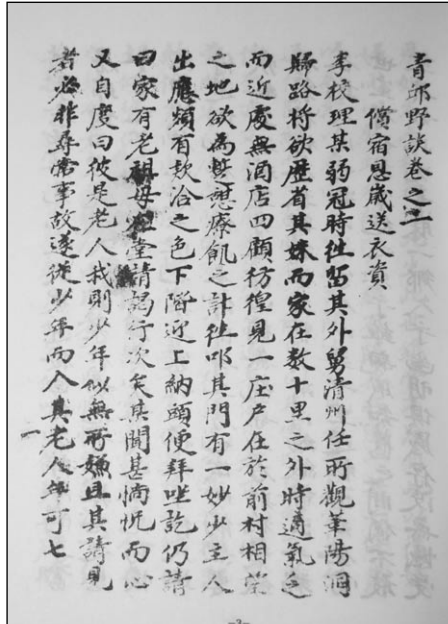 青邱野談卷之二
償宿恩歲送衣資
李校理某弱冠時往留其外舅清州任所觀華陽洞
歸路將欲歷省其妹而家在數十里之外時適氣乏
而近處無酒店四顧彷徨見一庄戶在於前村相望
之地欲為暫憩療飢之計往叩其門有一妙少主人
出應頗有欵洽之色下階迎上納頭便拜坐訖仍請
曰家有老祖母在堂請謁行次矣某聞甚惝怳而心
又自度曰彼是老人我則少年似無所嫌且其請見
者必非尋常事故遂從少年而入其老人年可七
-3-